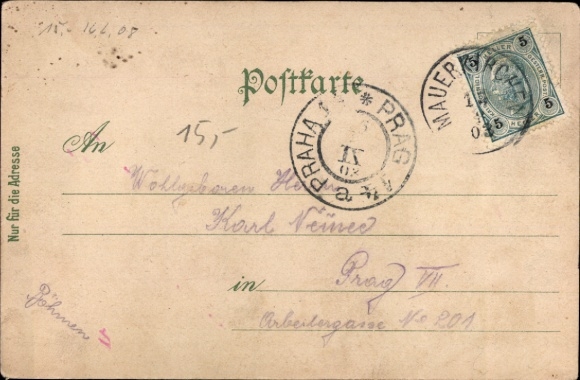 15.- 16.6.08
Postkarte
5 5
5 5
MAUERKIRCHEN
03
PRAHA 1 * PRAG
IX
03
15,-
An
Wohlgeboren Herrn
Karl Němec
in Prag VII.
Arbeitergasse No 201
Böhmen
Nur für die Adresse